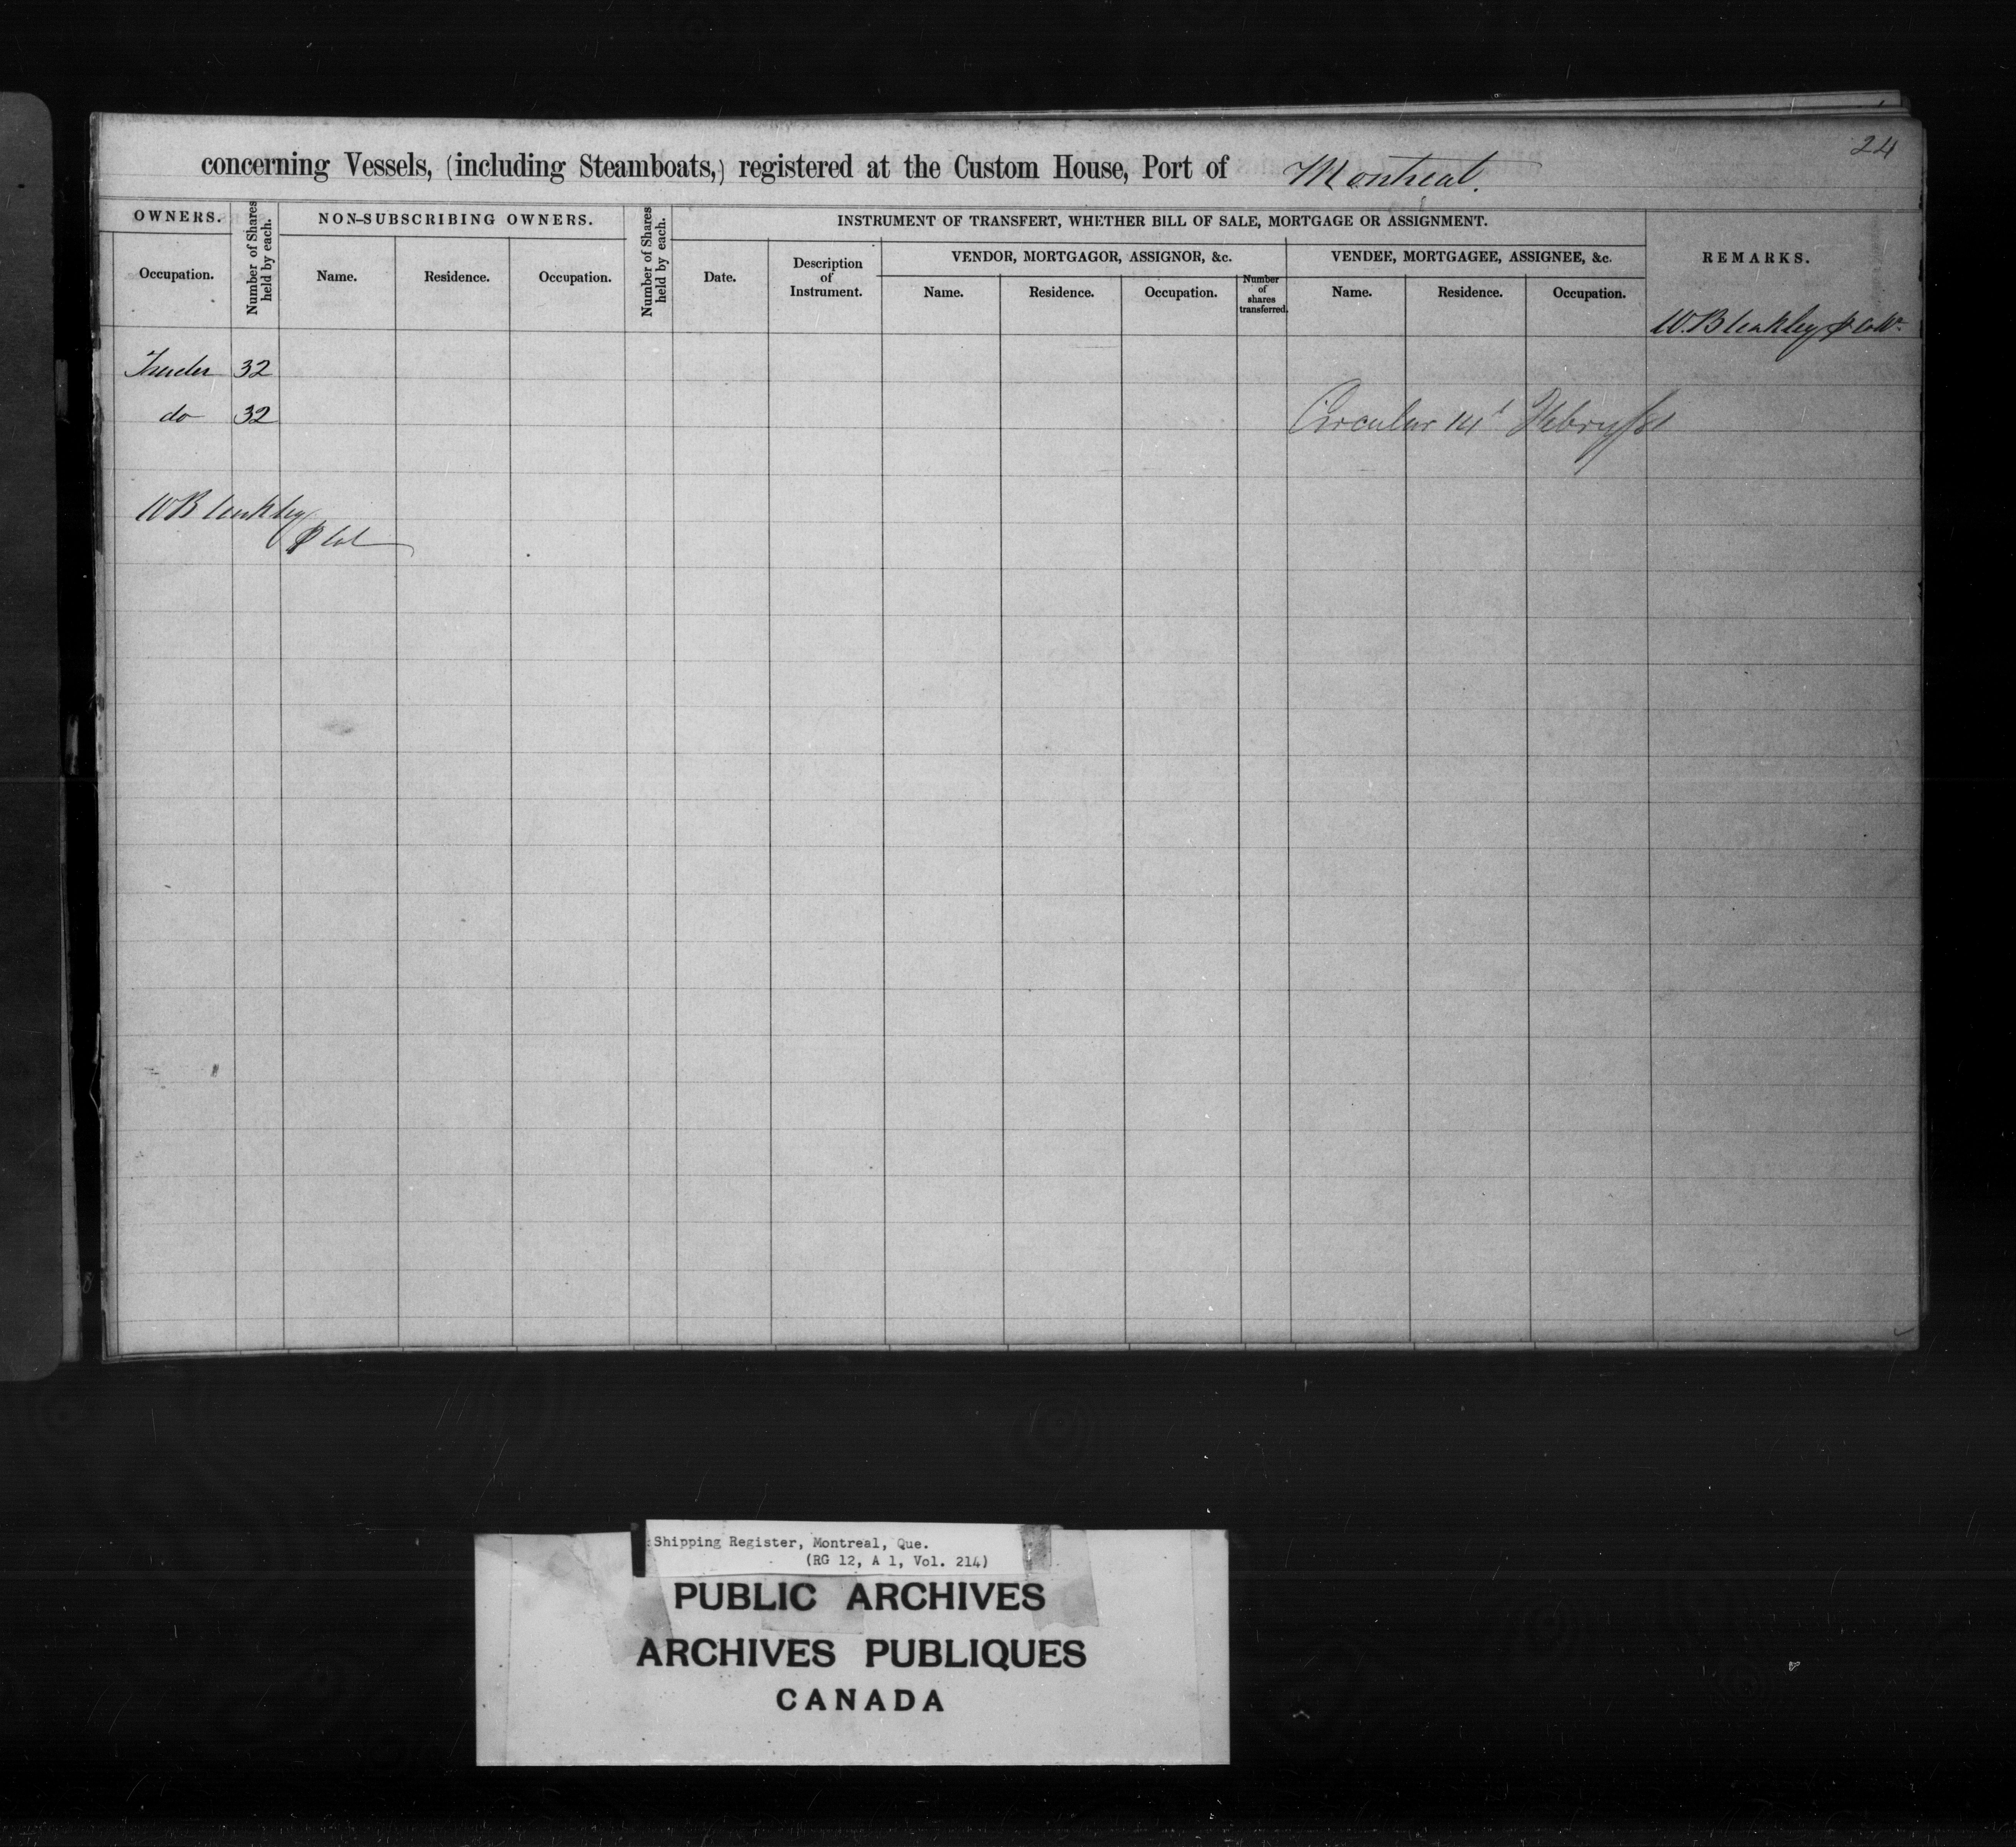 24
concerning Vessels, (including Steamboats,) registered at the Custom House, Port of Montreal.
OWNERS.
Number of Shares held by each.
NON-SUBSCRIBING OWNERS.
Number of Shares held by each.
INSTRUMENT OF TRANSFERT, WHETHER BILL OF SALE, MORTGAGE OR ASSIGNMENT.
REMARKS.
Occupation.
Name.
Residence.
Occupation.
Date.
Description
of
Instrument.
VENDOR, MORTGAGOR, ASSIGNOR, &c.
VENDEE, MORTGAGEE, ASSIGNEE, &c.
Name.
Residence.
Occupation.
Number
of
shares
transferred.
Name.
Residence.
Occupation.
W. Bleakley
32
do 32
Circular 14 Febry
W Bleakley
Shipping Register, Montreal, Que.
(RG 12, A 1, Vol. 214)
PUBLIC ARCHIVES
ARCHIVES PUBLIQUES
CANADA